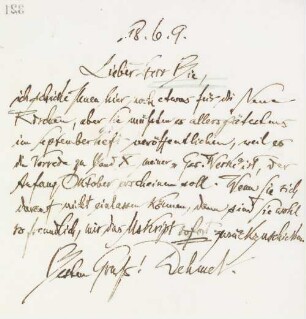 18.6.9.
Lieber Herr Bie,
ich schicke Ihnen hier noch etwas für die Neue
Rundschau, aber Sie müßten es allerspätestens
im Septemberheft veröffentlichen, weil es
die Vorrede zu Band X meiner "Ges. Werke" ist, der
Anfang Oktober erscheinen soll. Wenn Sie sich
darauf nicht einlassen können, dann sind Sie wohl
so freundlich, mir das Mskript sofort zurückzuschicken.
Gruß! Dehmel.